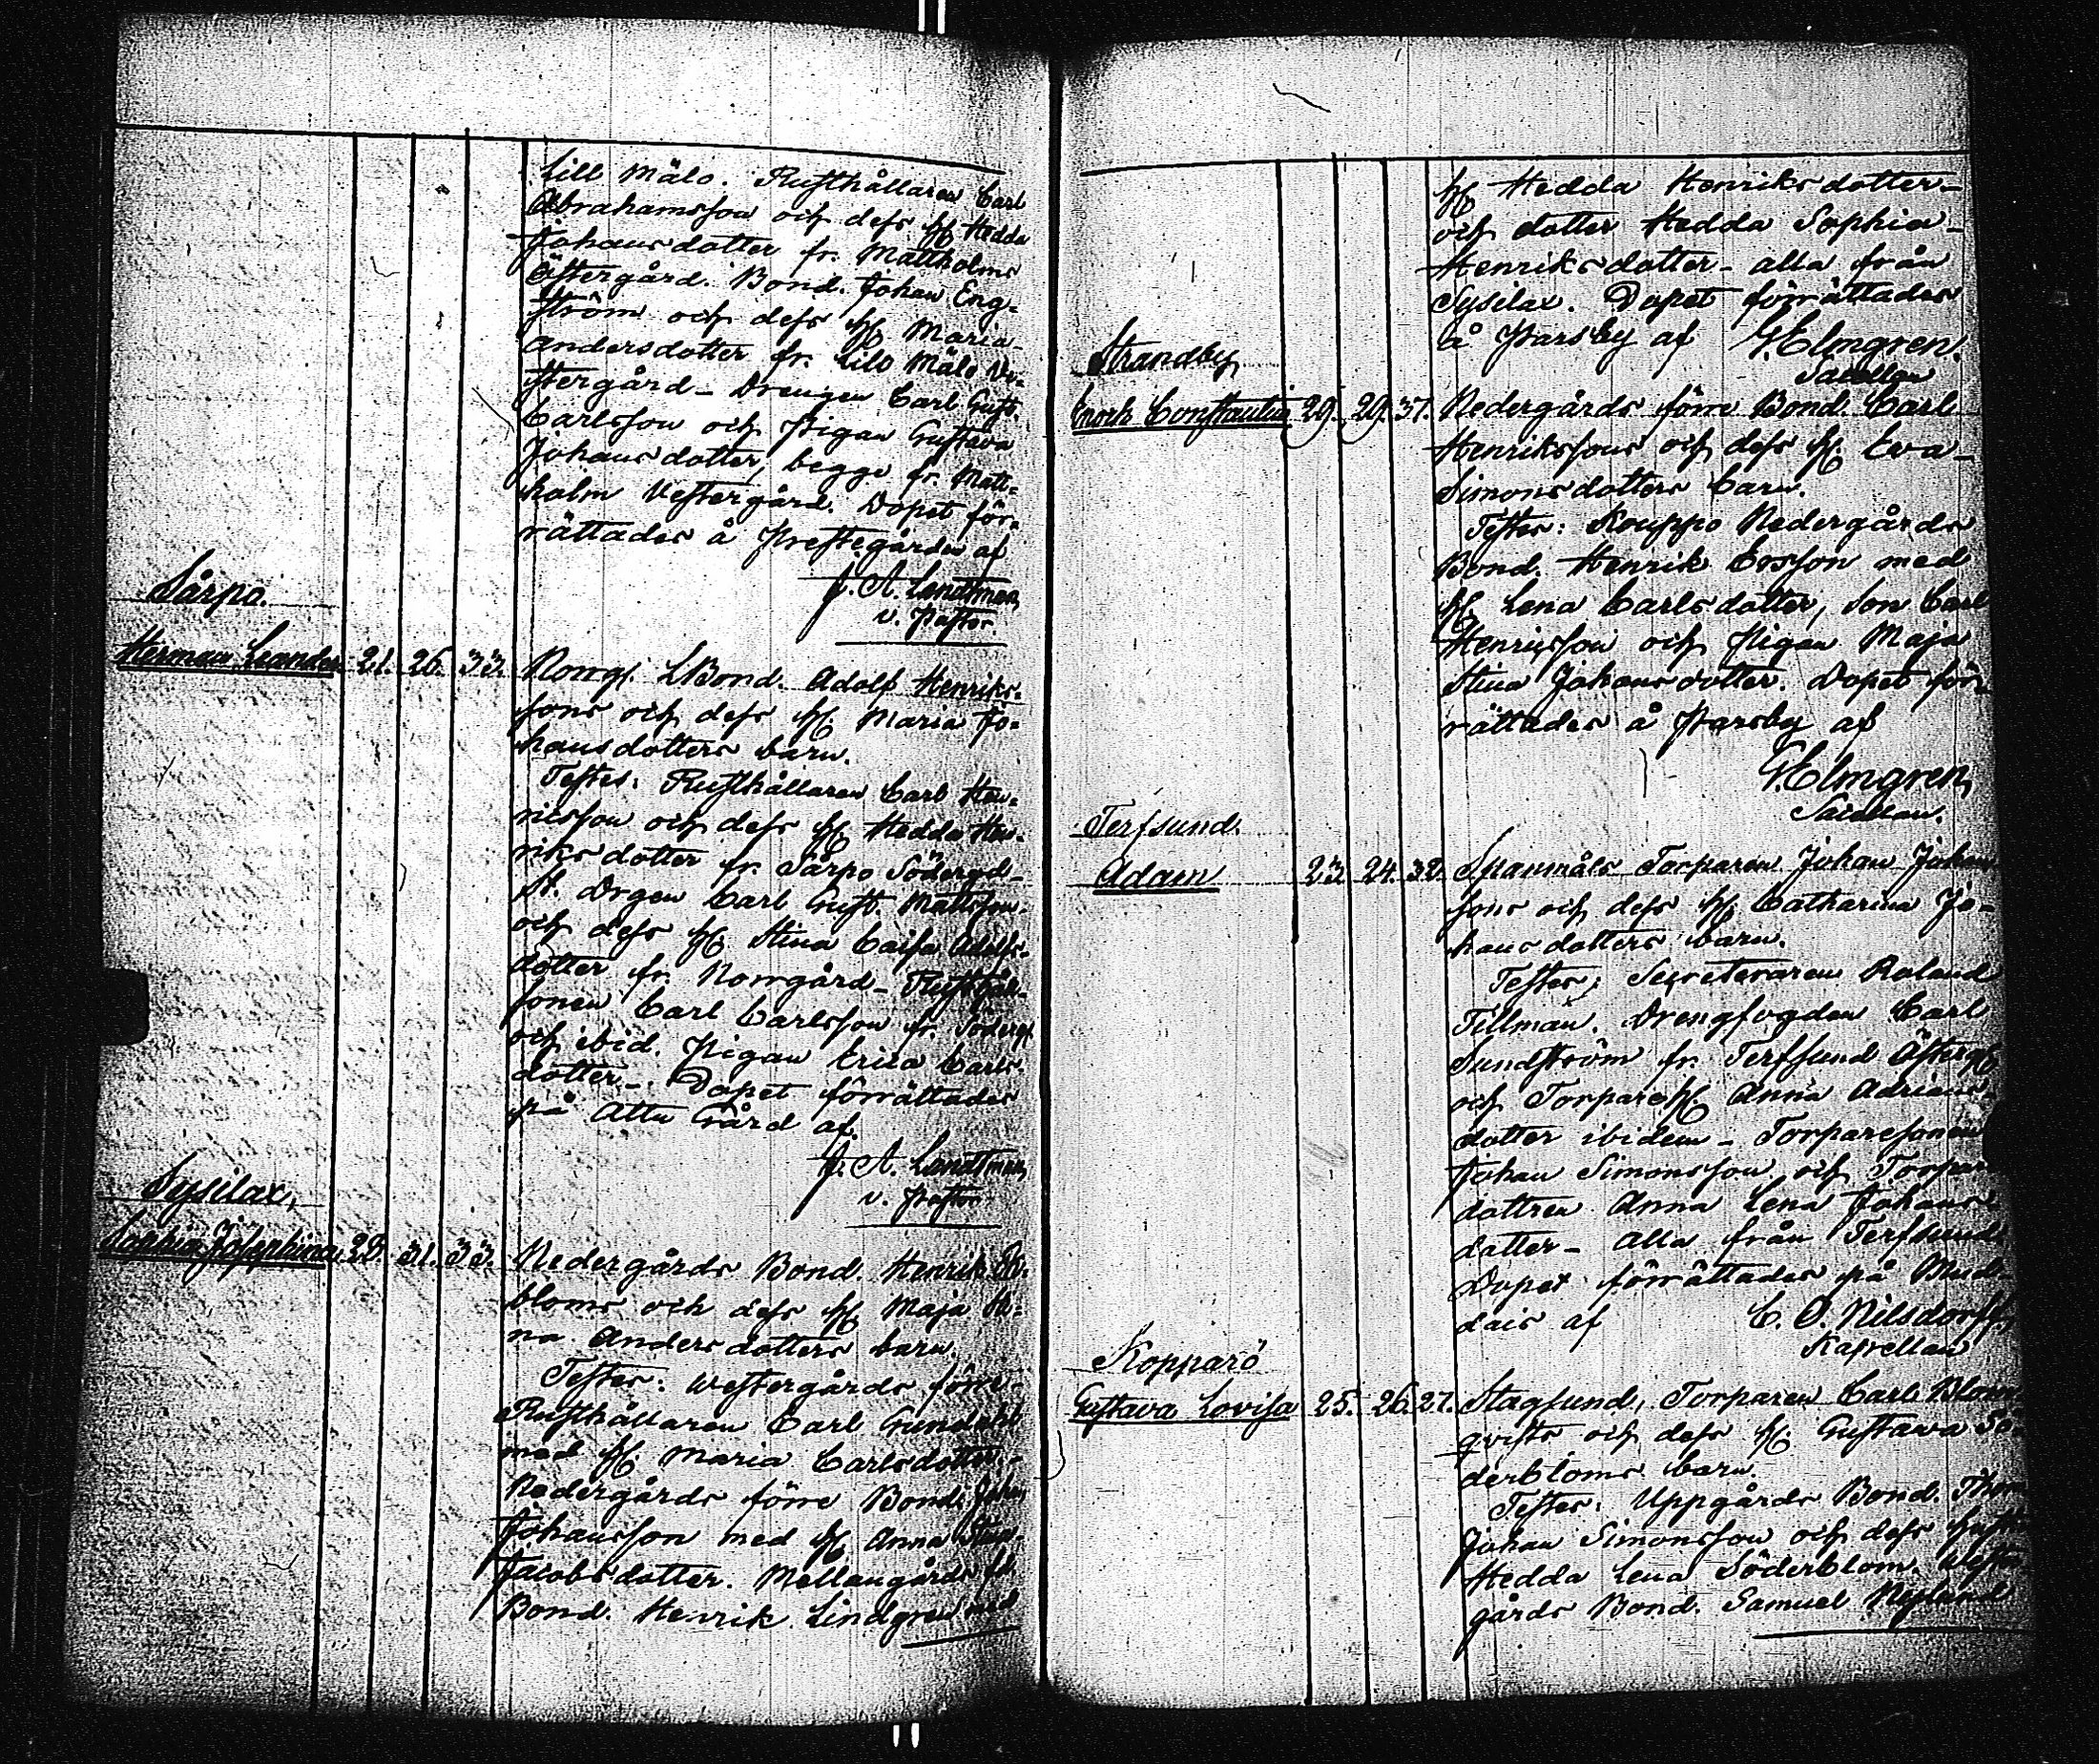 Lill Mälo. Rusthållaren Carl
Abrahamsson och dess H. Hedda
Johansdotter fr. Mattholms
Östergård. Bond. Johan Eng-
ström och dess H. Maria
Andersdotter fr. Lill Mälo
stergård - Drengen Carl Gust.
Carlsson och Pigan Gustava
Johansdotter, begge fr. Matt-
holm Vestergård. Dopet för-
rättades å Prestegården af
J. A. Landtman
v. Pastor.
Sårpo.
Herman Leander. 21. 26. 33. Norrg. Bond. Adolf Henriks-
sons och dess H. Maria Jo-
hansdotters barn.
Testes: Rusthållaren Carl Hen-
ricsson och dess H. Hedda Hen-
riksdotter fr. Sårpo Södergd -
St. Drgen Carl Gust. Mattsson
och dess H. Stina Caisa Adolfs-
dotter fr. Norrgård -
sonen Carl Carlsson fr. Söderg.
och ibid. Pigan Erica Carls-
dotter -. Dopet förrättades
på Attu Gård af
J. A. Landtman
v. Pastor
Sysilax,
Sophia Josephina 28. 31. 33. Nedergårds Bond. Henrik
bloms och dess H. Maja Sti-
na Andersdotters barn.
Testes: Westergårds förre
Rusthållaren Carl Grundahl
med H. Maria Carlsdotter. -
Nedergårds förre Bond. Johan
Johansson med H. Anna Stina
Jacobsdotter. Mellangårds fd.
Bond. Henrik Lindgren med
H. Hedda Henriksdotter -
och dotter Hedda Sophia
Henriksdotter - alla från
Sysilax. Dopet förrättades
å Parsby af G. Elmgren.
Sacellan
Strandby
Enoch Constantin 29. 29. 37. Nedergårds förre Bond. Carl
Henrikssons och dess H. Eva
Simonsdotters barn.
Testes: Kouppo Nedergårds
Bond. Henrik Ersson med
H. Lena Carlsdotter, Son Carl
Henricsson och Pigan Maja
Stina Johansdotter. Dopet för-
rättades å Parsby af
G. Elmgren,
Sacellan.
Terfsund.
Adam 23. 24. 32. Spannmåls Torparen Johan Johans
sons och dess H. Catharina Jo-
hansdotters barn.
Testes: Secreteraren Roland
Tillman. Drengfogden Carl
Sundström fr. Terfsund Österg.
och Torpare H. Anna Adrians-
dotter ibidem - Torparesonen
Johan Simonsson och Torpar
dottren Anna Lena Johans
dotter - Alla från Terfsund
Dopet förrättades på Mul-
dais af C. O. Nilsdorff,
Kapellan
Kopparö
Gustava Lovisa 25. 26. 27. Stagsund, Torparen Carl Blom
qvists och dess H. Gustava Sö-
derbloms barn.
Testes: Uppgårds Bond.
Johan Simonsson och dess Hustru
Hedda Lena Söderblom. Wester
gårds Bond. Samuel Nylund